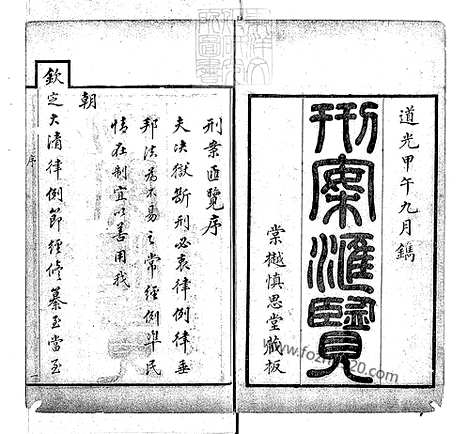 道光甲午九月鐫
刑案滙覽
棠樾慎思堂藏板
刑案匯覽序
夫决獄斷刑必衷律例律垂
邦法為不易之常經例準民
情在制宜以善用我
朝
欽定大清律例節經修纂至當至
序
一